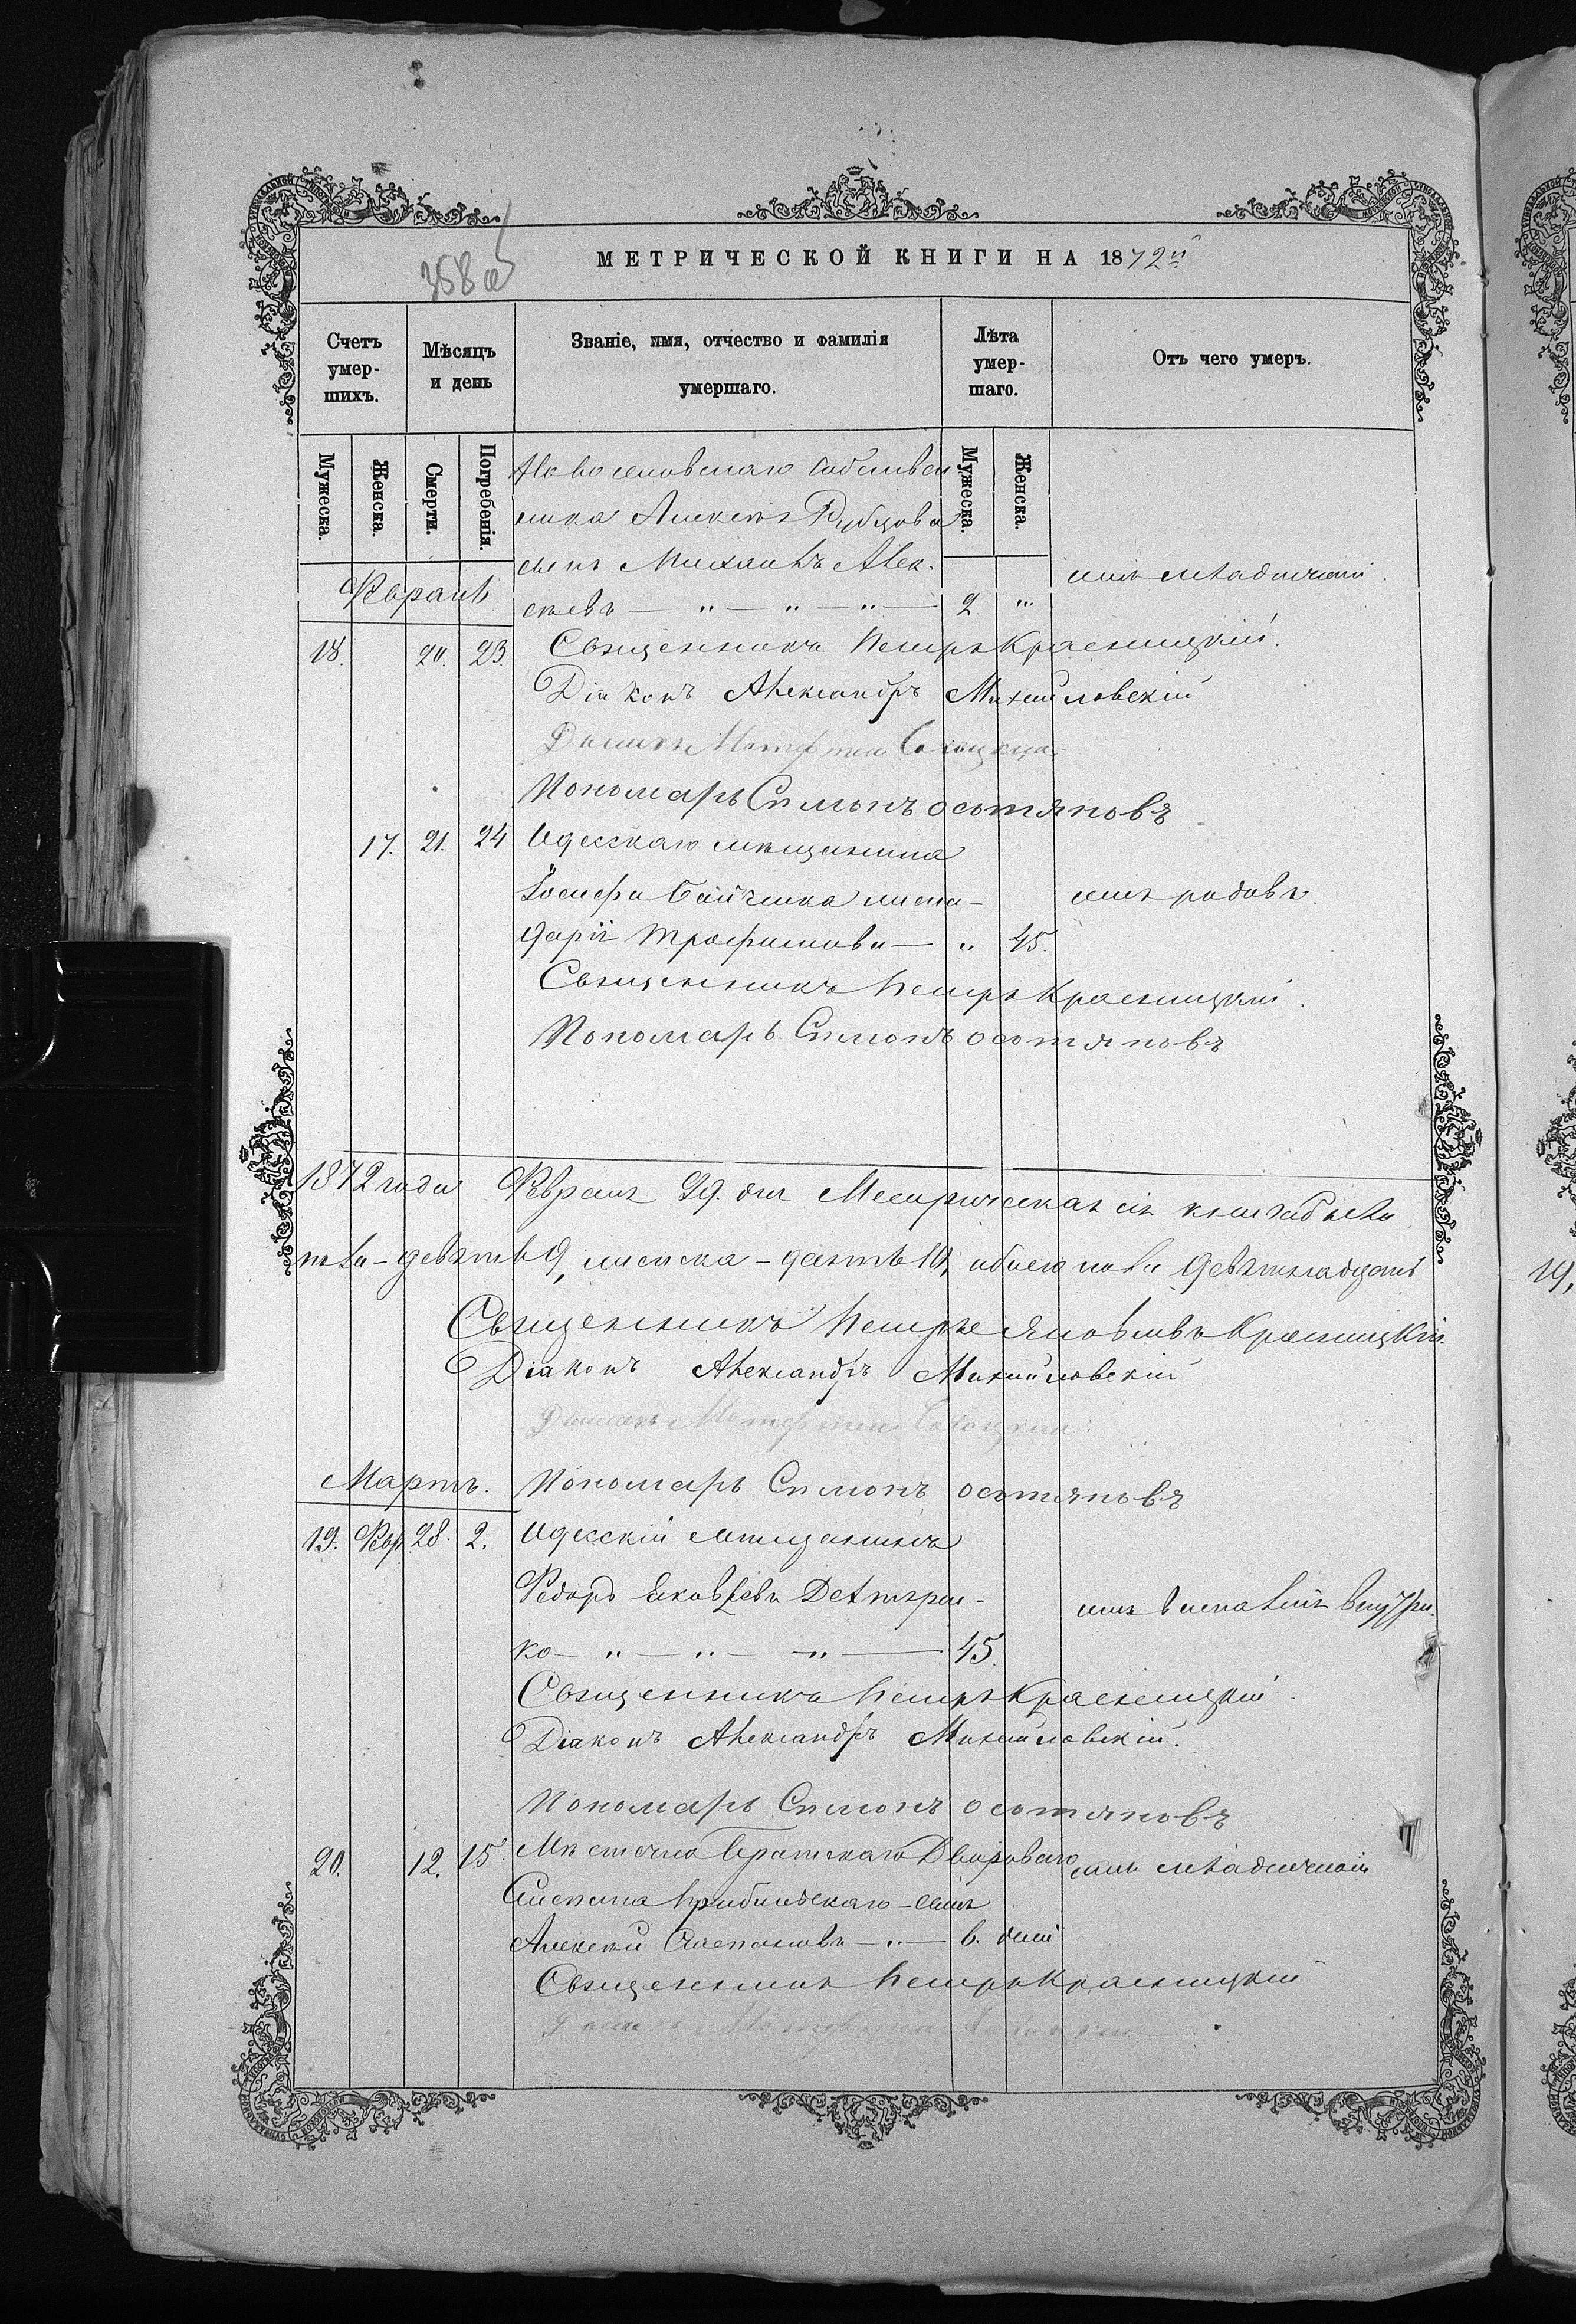 358 об
МЕТРИЧЕСКОЙ КНИГИ НА 1872й
Счетъ умер- шихъ.
Мѣсяцъ и день
Званіе, имя, отчество и фамилія умершаго.
Лѣта умер- шаго.
Отъ чего умеръ.
Мужеска. Женска. Смерти. Погребенія. Мужеска. Женска.
Алексѣя Рубцова
сынъ Михаилъ Алек-
сѣевъ — " — " — " — 2. "
отъ младенческой.
Февраль
18. 20. 23. Священникъ Петръ Красницкій.
Діаконъ Александръ Михайловскій
Пономарь Симонъ Осотяновъ
17. 21. 24 Одесскаго мѣщанина
Іосифа жена
Дарія Трофимова — " 45.
отъ родовъ.
Священникъ Петръ Красницкій.
Пономарь Симонъ Осотяновъ
1872 года Февраля 29. дня Метрическая сія
пола – девять 9, женска – десять 10, обоего пола девятнадцать
Священникъ Петръ Яковлевъ Красницкій.
Діаконъ Александръ Михайловскій
Мартъ.
Пономарь Симонъ Осотяновъ
19. Февр. 28. 2. Одесскій мѣщанинъ
Федоръ Яковлевъ
ко — " — " — " — 45.
отъ воспаленія внутри.
Священникъ Петръ Красницкій.
Діаконъ Александръ Михайловскій.
Пономарь Симонъ Осотяновъ
20. 12. 15. Мѣстечка Братскаго Двороваго
отъ младенческой
Степана сынъ
Алексѣй Степановъ — " — 6. дней
Священникъ Петръ Красницкій
19,